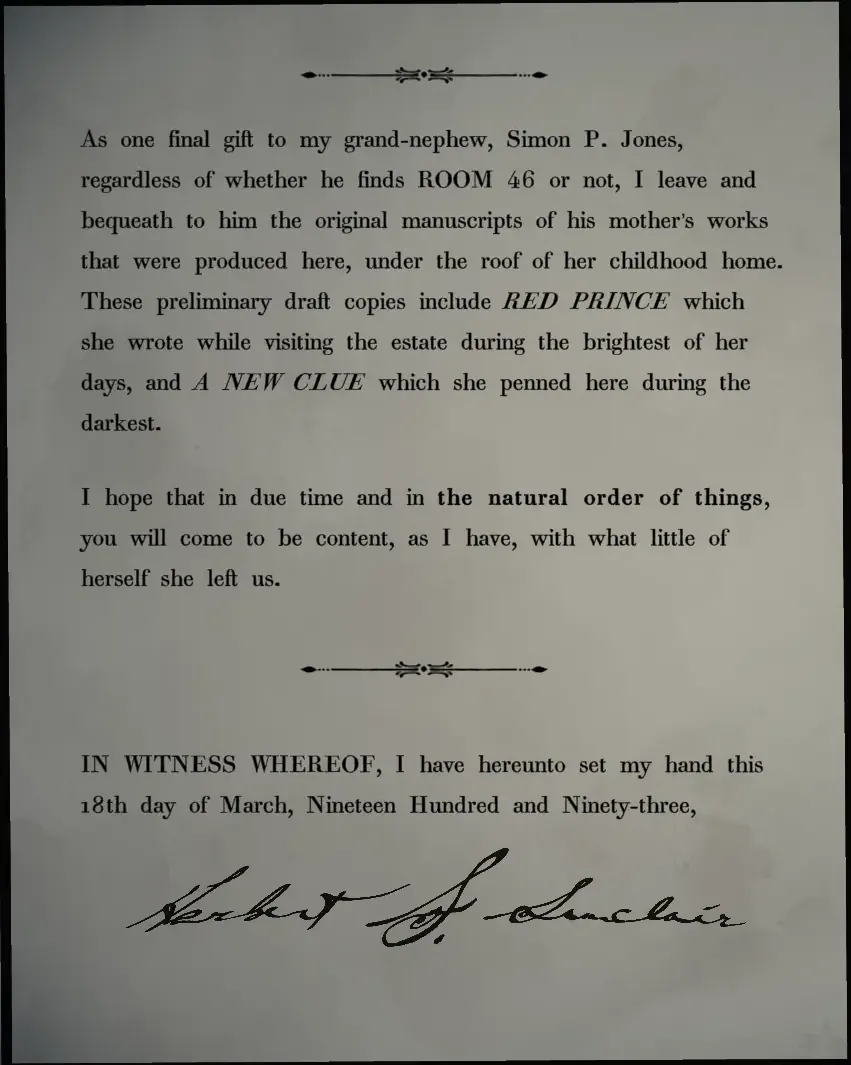 As one final gift to my grand-nephew, Simon P. Jones,
regardless of whether he finds ROOM 46 or not, I leave and
bequeath to him the original manuscripts of his mother's works
that were produced here, under the roof of her childhood home.
These preliminary draft copies include RED PRINCE which
she wrote while visiting the estate during the brightest of her
days, and A NEW CLUE which she penned here during the
darkest.
I hope that in due time and in the natural order of things,
you will come to be content, as I have, with what little of
herself she left us.
IN WITNESS WHEREOF, I have hereunto set my hand this
18th day of March, Nineteen Hundred and Ninety-three,
Herbert S. Sinclair